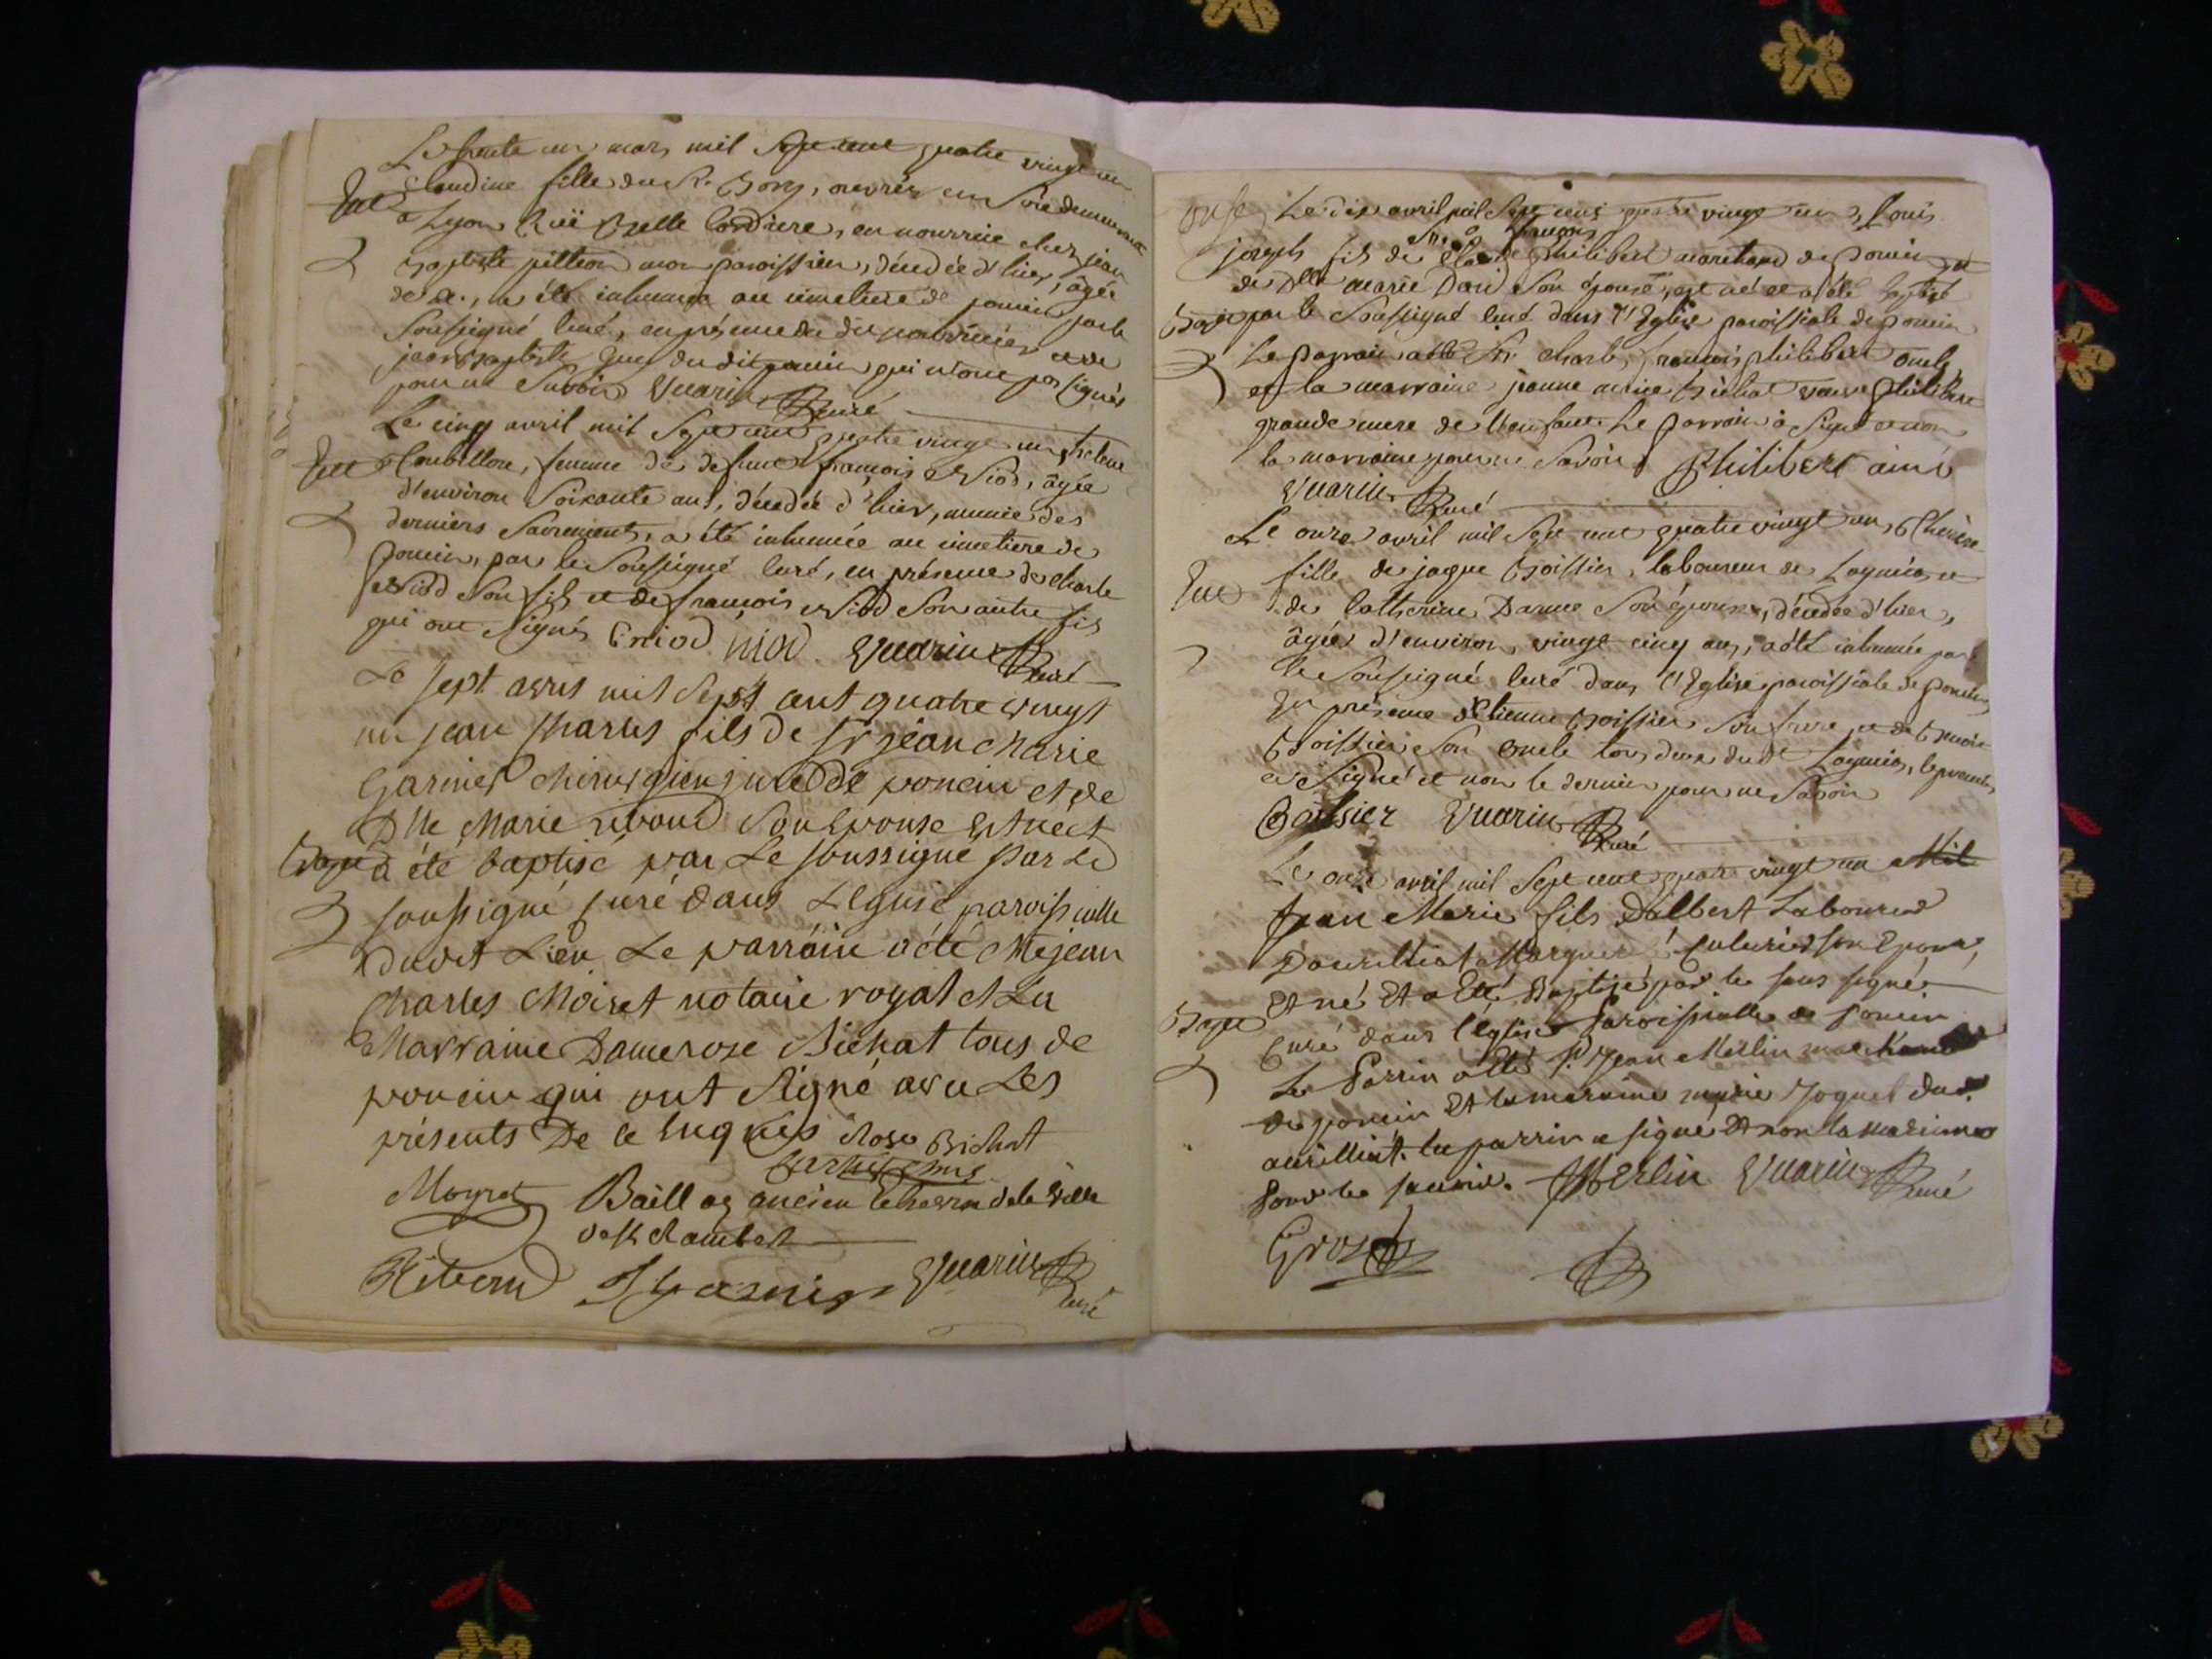 Le trente un mars mil sept cent quatre vingt un
Claudine fille du Sr. Bory, ouvrier en soie demeurant
Ent
a Lyon Ruë Belle Cordiere, en nourrice chez jean
baptiste pillion mon paroissien, décédée d'hier, âgée
de, a été inhumée au cimetiere de poncin par le
soussigné Curé, en présence du dit nourricier et de
jean baptiste du dit poncin qui n'ont pas signés
pour ne savoir Vuarin Curé
Le cinq avril mil sept cent quatre vingt un
Ent
Coubillon, femme de defunt françois Niod, âgée
d'environ soixante ans, décédée d'hier, munie des
derniers sacrements, a été inhumée au cimetiere de
poncin, par le soussigné Curé, en présence de Charle
Niod son fils et de françois Niod son autre fils
qui ont signés C niod niod Vuarin Curé
Le sept avril mil sept cent quatre vingt
un jean charles fils de Sr jean marie
Garnier chirurgien juré de poncin et de
Dlle Marie riboud son epouse est né et
Bapt
a été baptisé par Le soussigné par Le
soussigné curé dans L'eglise paroissialle
dudit Lieu Le parrain a été Me jean
Charles Moiret notaire royal et La
Marraine Dame rose Bichat tous de
poncin qui ont signé avec Les
présents De ce enquis Rose Bichat
Moyret Baillog ancien echevin de la ville
de st Rambert
Riboud Garnier Vuarin Curé
Le dix avril mil sept cent quatre vingt un, Louis
joseph fils de Sr. françois Philibert marchand de Poncin et
de Dlle marie David son épouse, est né et a été baptisé
Bapt par le soussigné Curé dans l'Eglise paroissiale de poncin
Le parrain a été Sr. Charle françois philibert oncle,
et la marraine jeanne marie Bichat veuve Philibert
grande mere de l'enfant. Le parrain a signé et non
la marraine pour ne savoir Philibert ainé
Vuarin Curé
Le onze avril mil sept cent quatre vingt un, Therese
Ent
fille de jaque Boissier, laboureur de Loyma et
de Catherine Darme son épouse, décédée d'hier,
âgée d'environ vingt cinq ans, a été inhumée par
le soussigné Curé dans l'Eglise paroissiale de poncin,
En présence d'Etienne Boissier son frere et de
Boissier son oncle tous deux dudt. le premier
a signé et non le dernier pour ne savoir
Boissier Vuarin Curé
Le onze avril mil sept cent quatre vingt un Mil
Jean Marie fils D'albert Laboureur
son Epouse,
Et né Et a Eté Baptisé par le sous signé
Bapt
Curé dans l'église Paroissialle de Poncin
Le Parrin a Eté Sr. Jean Merlin marchand
de poncin Et la marraine marie Joguet dud.
aurilliat. Le parrin a signé Et non la marinne
Vuarin Curé
JMerlin
Gros